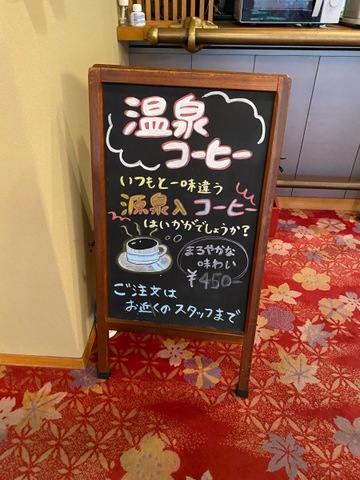 温泉
コーヒー
いつもと一味違う
源泉入コーヒー
はいかがでしょうか?
まろやかな
味わい
¥450-
ご注文は
お近くのスタッフまで